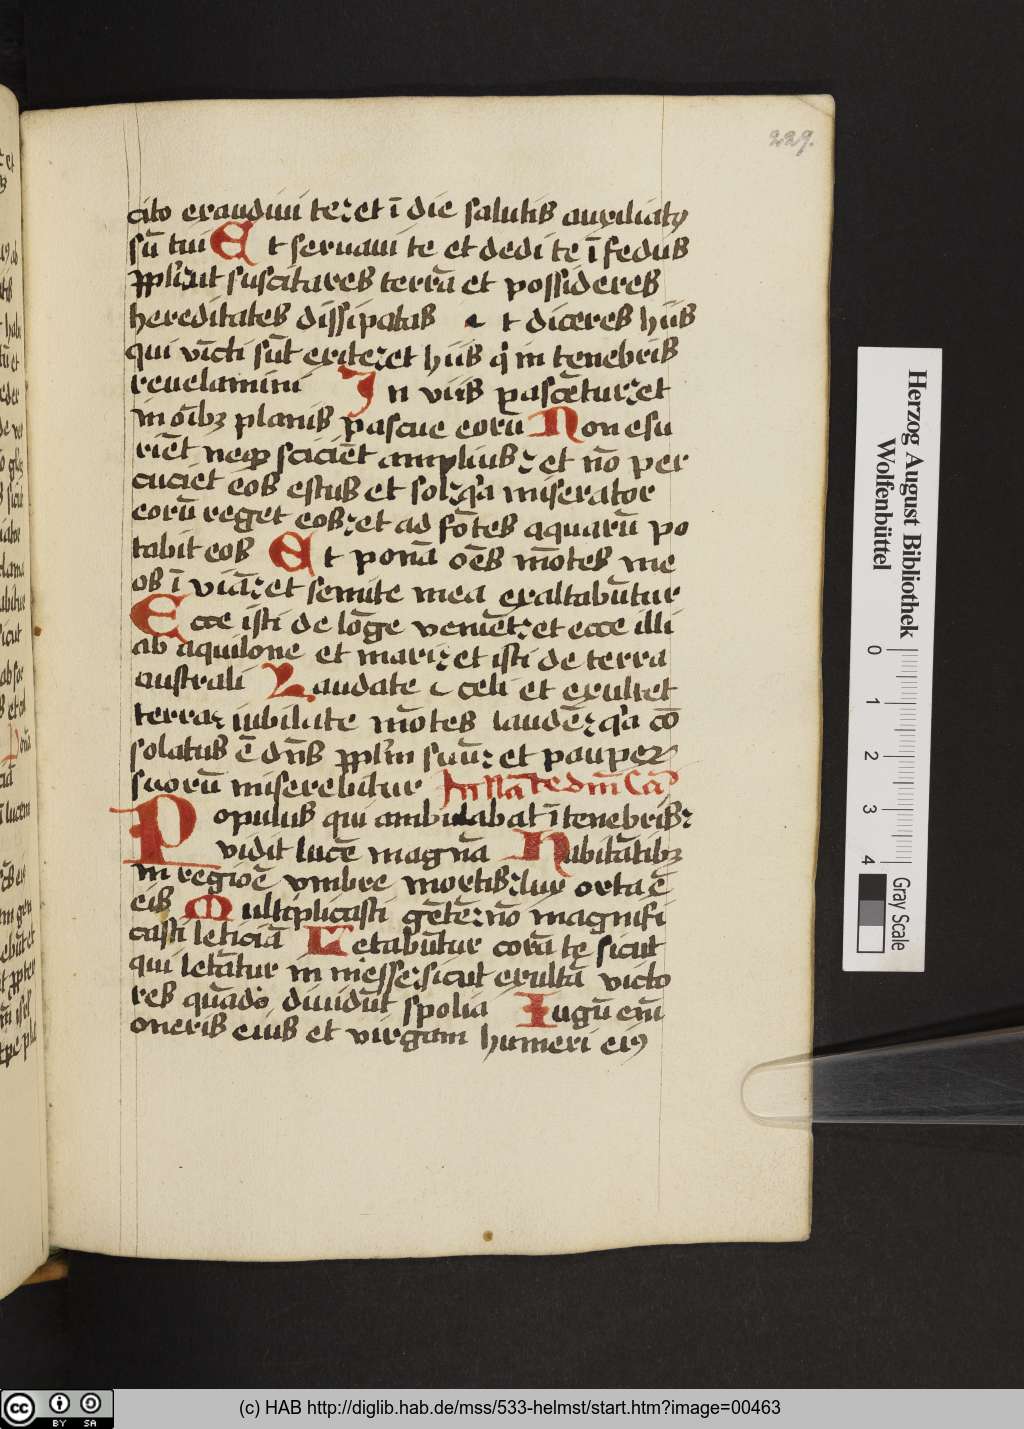 229.
cito exaudiui te: et ī die salutis auxiliatꝯ
sū tui Et seruaui te et dedi te ī fedus
ppl̄i: ut suscitares terrā et possideres
hereditates dissipatas et diceres hiis
qui vīcti sūt exite: et hiis q̄ in tenebris
reuelamini In viis pascētur: et
in oībꝫ planis pascue eorū Non esu
riēt neqꝫ sciciēt amplius: et nō per
cuciet eos estus et sol: q̄a miserator
eorū reget eos: et ad fōtes aquarū po
tabit eos Et ponā oēs mōtes me
os ī viā: et semite mea exaltabūtur
Ecce isti de lōge veniēt: et ecce illi
ab aquilone et mari: et isti de terra
australi Laudate celi et exultet
terra: iubilate mōtes laudē: q̄a cō
solatus ē dn̄s ppl̄m suū: et pauperꝫ
suorū miserebitur
Populus qui ambulabat ī tenebris:
vidit lucē magnā Habitātibꝫ
in regiōe vmbre mortis: lux orta ē
eis Multiplicasti gētē: nō magnifi
casti leticiā Letabūtur corā te sicut
qui letātur in messe: sicut exultā victo
res quādo diuidūt spolia Iugū eni̅
oneris eius et virgam humeri eiꝯ
Herzog August Bibliothek
Wolfenbüttel
0 1 2 3 4
Gray Scale
cc BY SA
(c) HAB http://diglib.hab.de/mss/533-helmst/start.htm?image=00463